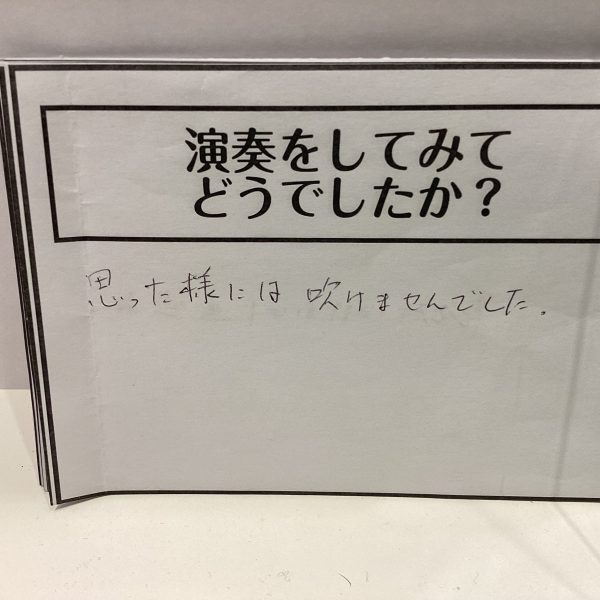 演奏をしてみて
どうでしたか？
思った様には 吹けませんでした.